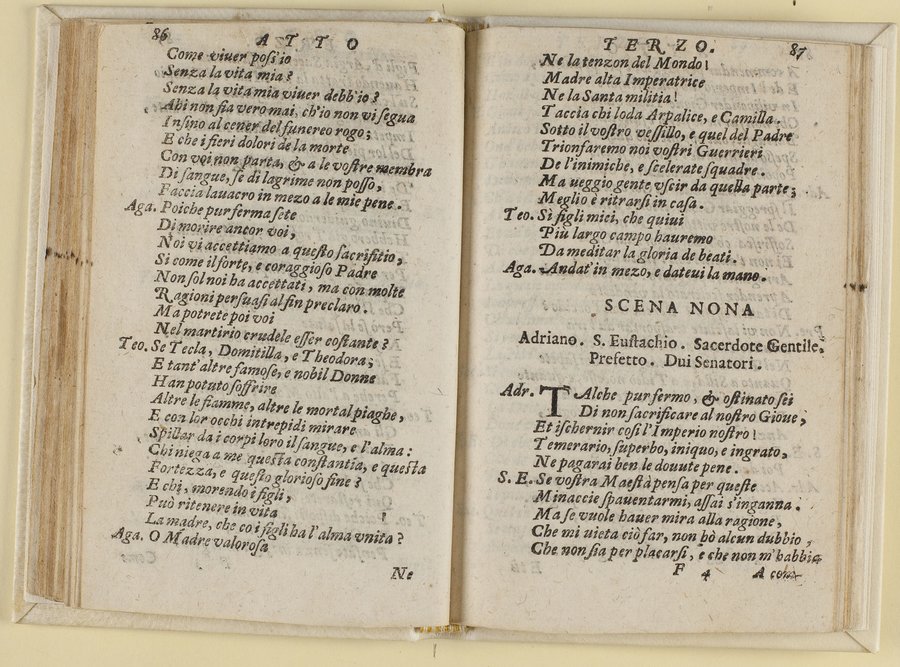 86 ATTO
Come viuer poss'io
Senza la vita mia?
Senza la vita mia viuer debb'io?
Ahi non sia vero mai, ch'io non vi segua
Insino al cener del funereo rogo;
E che i fieri dolori de la morte
Con voi non parta, & a le vostre membra
Di sangue, se di lagrime non posso,
Faccia lauacro in mezo a le mie pene.
Aga. Poiche pur ferma sete
Di morire ancor voi,
Noi vi accettiamo a questo sacrifitio,
Si come il forte, e coraggioso Padre
Non sol noi ha accettati, ma con molte
Ragioni persuasi al fin preclaro.
Ma potrete poi voi
Nel martirio crudele esser costante?
Teo. Se Tecla, Domitilla, e Theodora;
E tant'altre famose, e nobil Donne
Han potuto soffrire
Altre le fiamme, altre le mortal piaghe,
E con lor occhi intrepidi mirare
Spillar da i corpi loro il sangue, e l'alma:
Chi niega a me questa constantia, e questa
Fortezza, e questo glorioso fine?
E chi, morendo i figli,
Può ritenere in vita
La madre, che co i figli ha l'alma vnita?
Aga. O Madre valorosa
Ne
TERZO. 87
Ne la tenzon del Mondo!
Madre alta Imperatrice
Ne la Santa militia!
Taccia chi loda Arpalice, e Camilla.
Sotto il vostro vessillo, e quel del Padre
Trionfaremo noi vostri Guerrieri
De l'inimiche, e scelerate squadre.
Ma ueggio gente vscir da quella parte;
Meglio è ritrarsi in casa.
Teo. Sì figli miei, che quiui
Più largo campo hauremo
Da meditar la gloria de beati.
Aga. Andat'in mezo, e dateui la mano.
SCENA NONA
Adriano. S. Eustachio. Sacerdote Gentile,
Prefetto. Dui Senatori.
Adr. TAlche pur fermo, & ostinato sei
Di non sacrificare al nostro Gioue,
Et ischernir così l'Imperio nostro!
Temerario, superbo, iniquo, e ingrato,
Ne pagarai ben le douute pene.
S. E. Se vostra Maestà pensa per queste
Minaccie spauentarmi, assai s'inganna.
Ma se vuole hauer mira alla ragione,
Che mi uieta ciò far, non hò alcun dubbio,
Che non sia per placarsi, e che non m'habbia
F 4 A com-